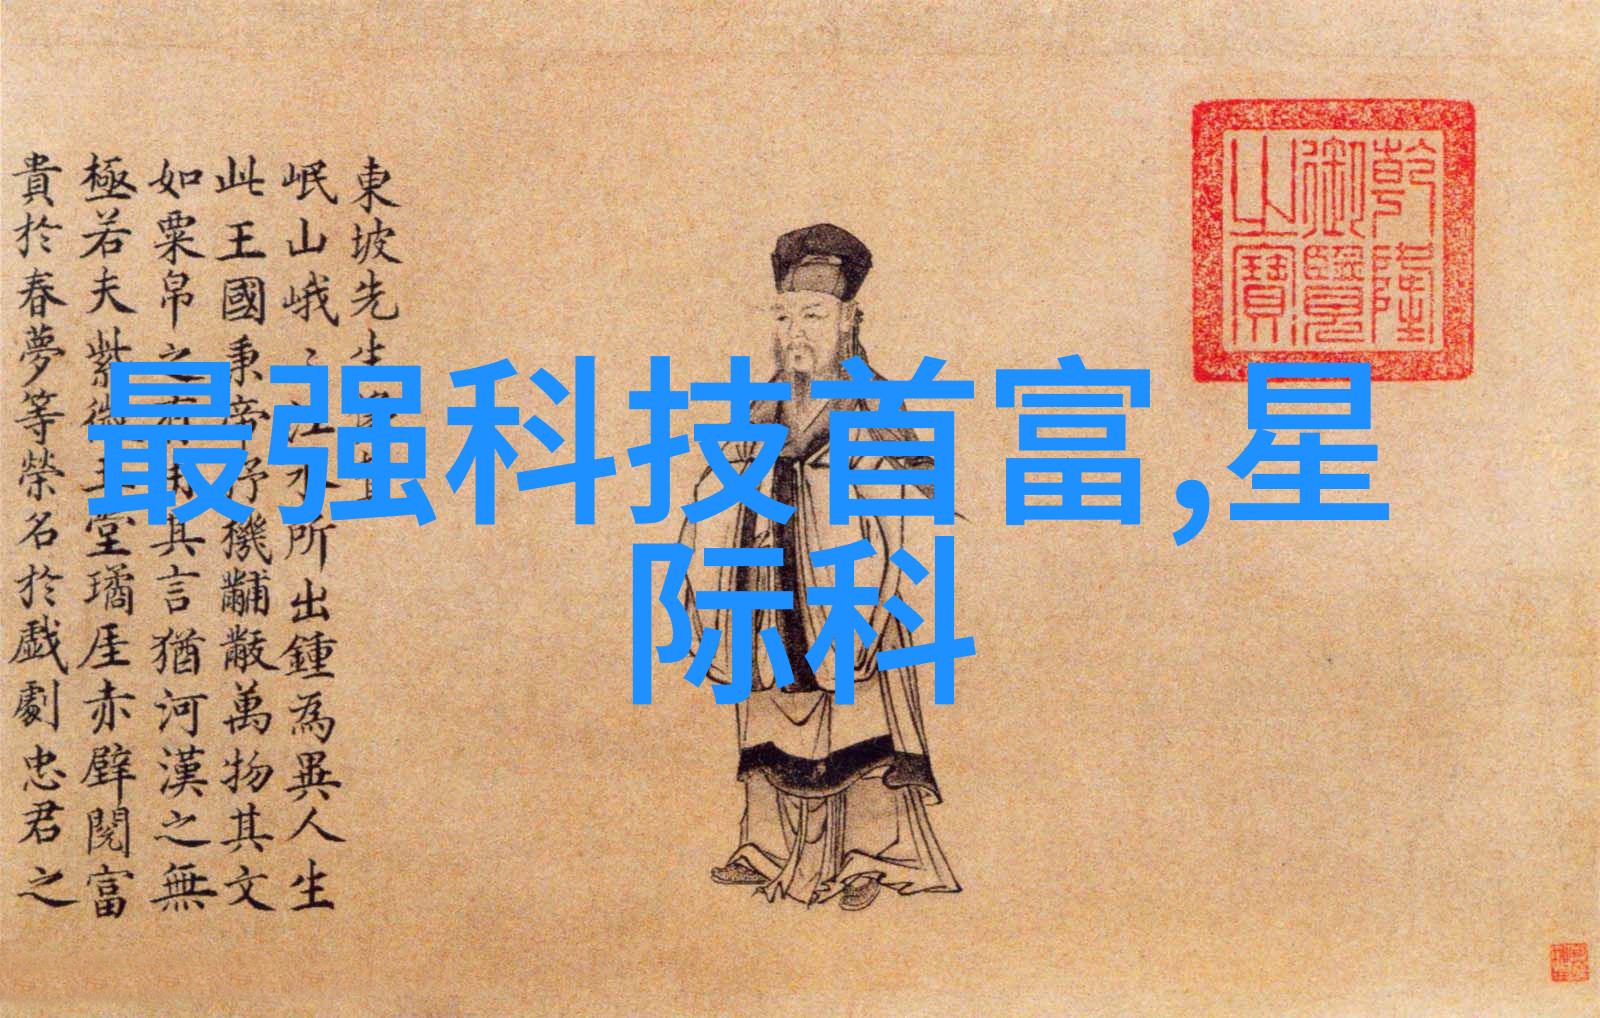 最强科技首富,星
际科
東坡先生
岷山峨〻江水所出鍾為異人生
此王國秉帝杼機黼黻萬物其文
如粟帛之有用其言猶河漢之無
極若夫紫微玉堂璚厓赤壁閱富
貴於春夢等榮名於戯劇忠君之
乾隆
御覽
之寶